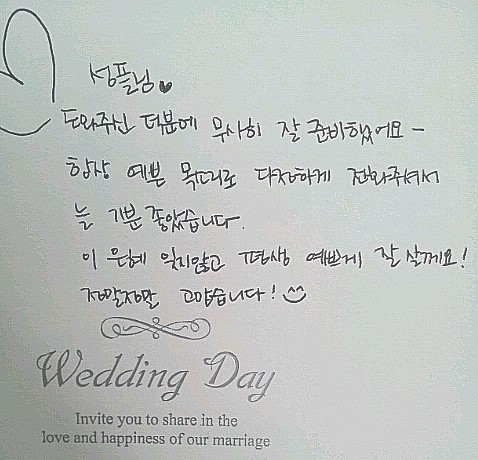 성플님♥
도와주신 덕분에 무사히 잘 준비했어요~
항상 예쁜 목소리로 다정하게 전화주셔서
늘 기분 좋았습니다.
이 은혜 잊지않고 평생 예쁘게 잘 살게요!
정말정말 고맙습니다!
Wedding Day
Invite you to share in the
love and happiness of our marriage